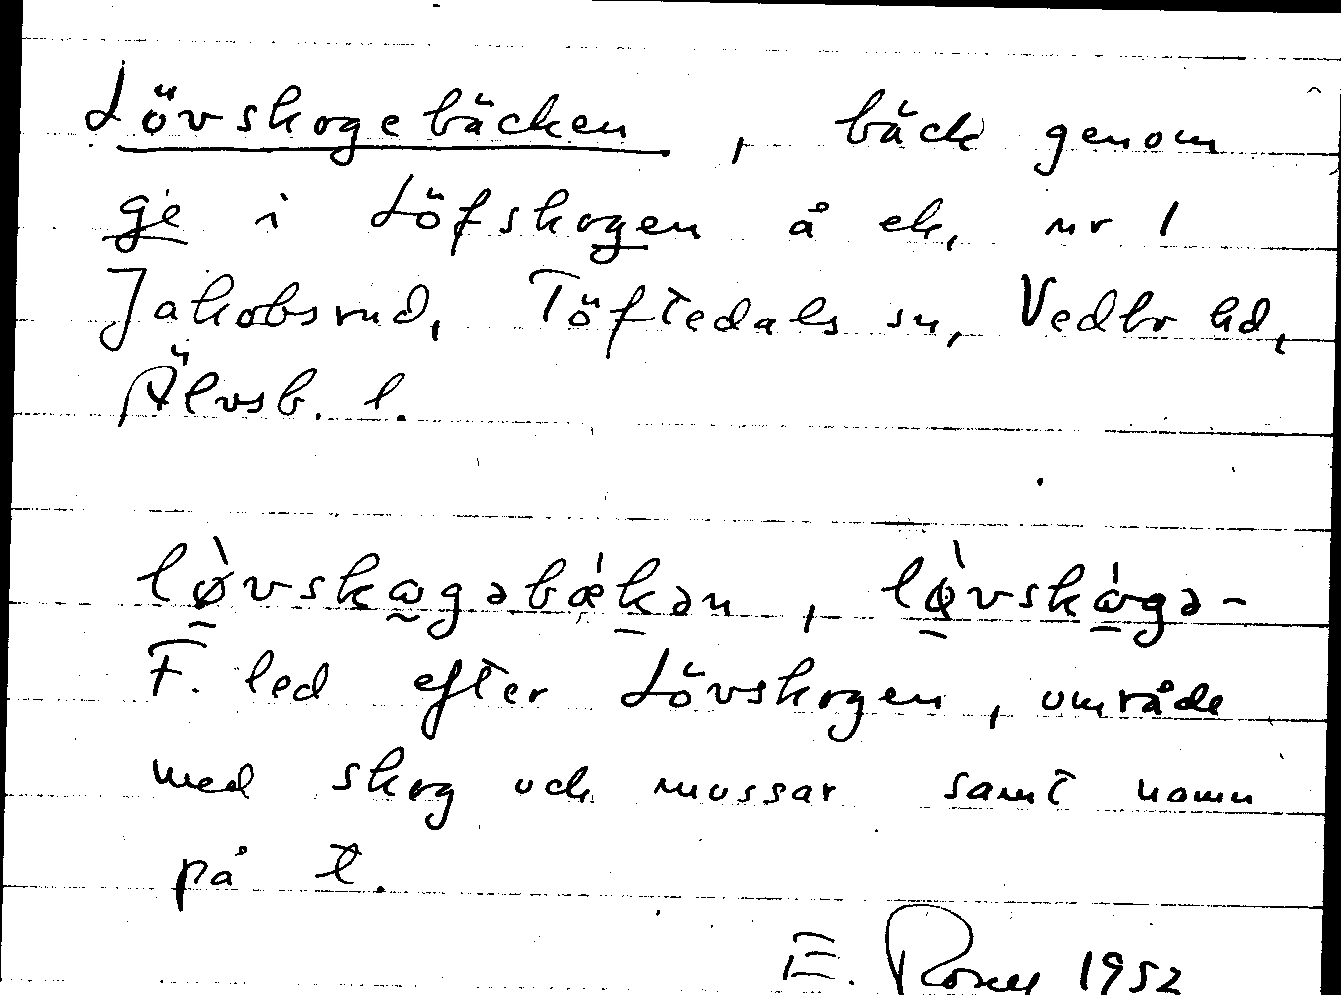 Lövskogebäcken, bäck genom
ge i Löfskogen å ek, nr 1
Jakobsrud, Töftedals sn, Vedbo hd,
Älvsb. l.
lø̀vskɷgəbǽkən, lø̀vskɷ́gə-
F. led efter Lövskogen, område
med skog och mossar samt namn
på t.
E. 1952